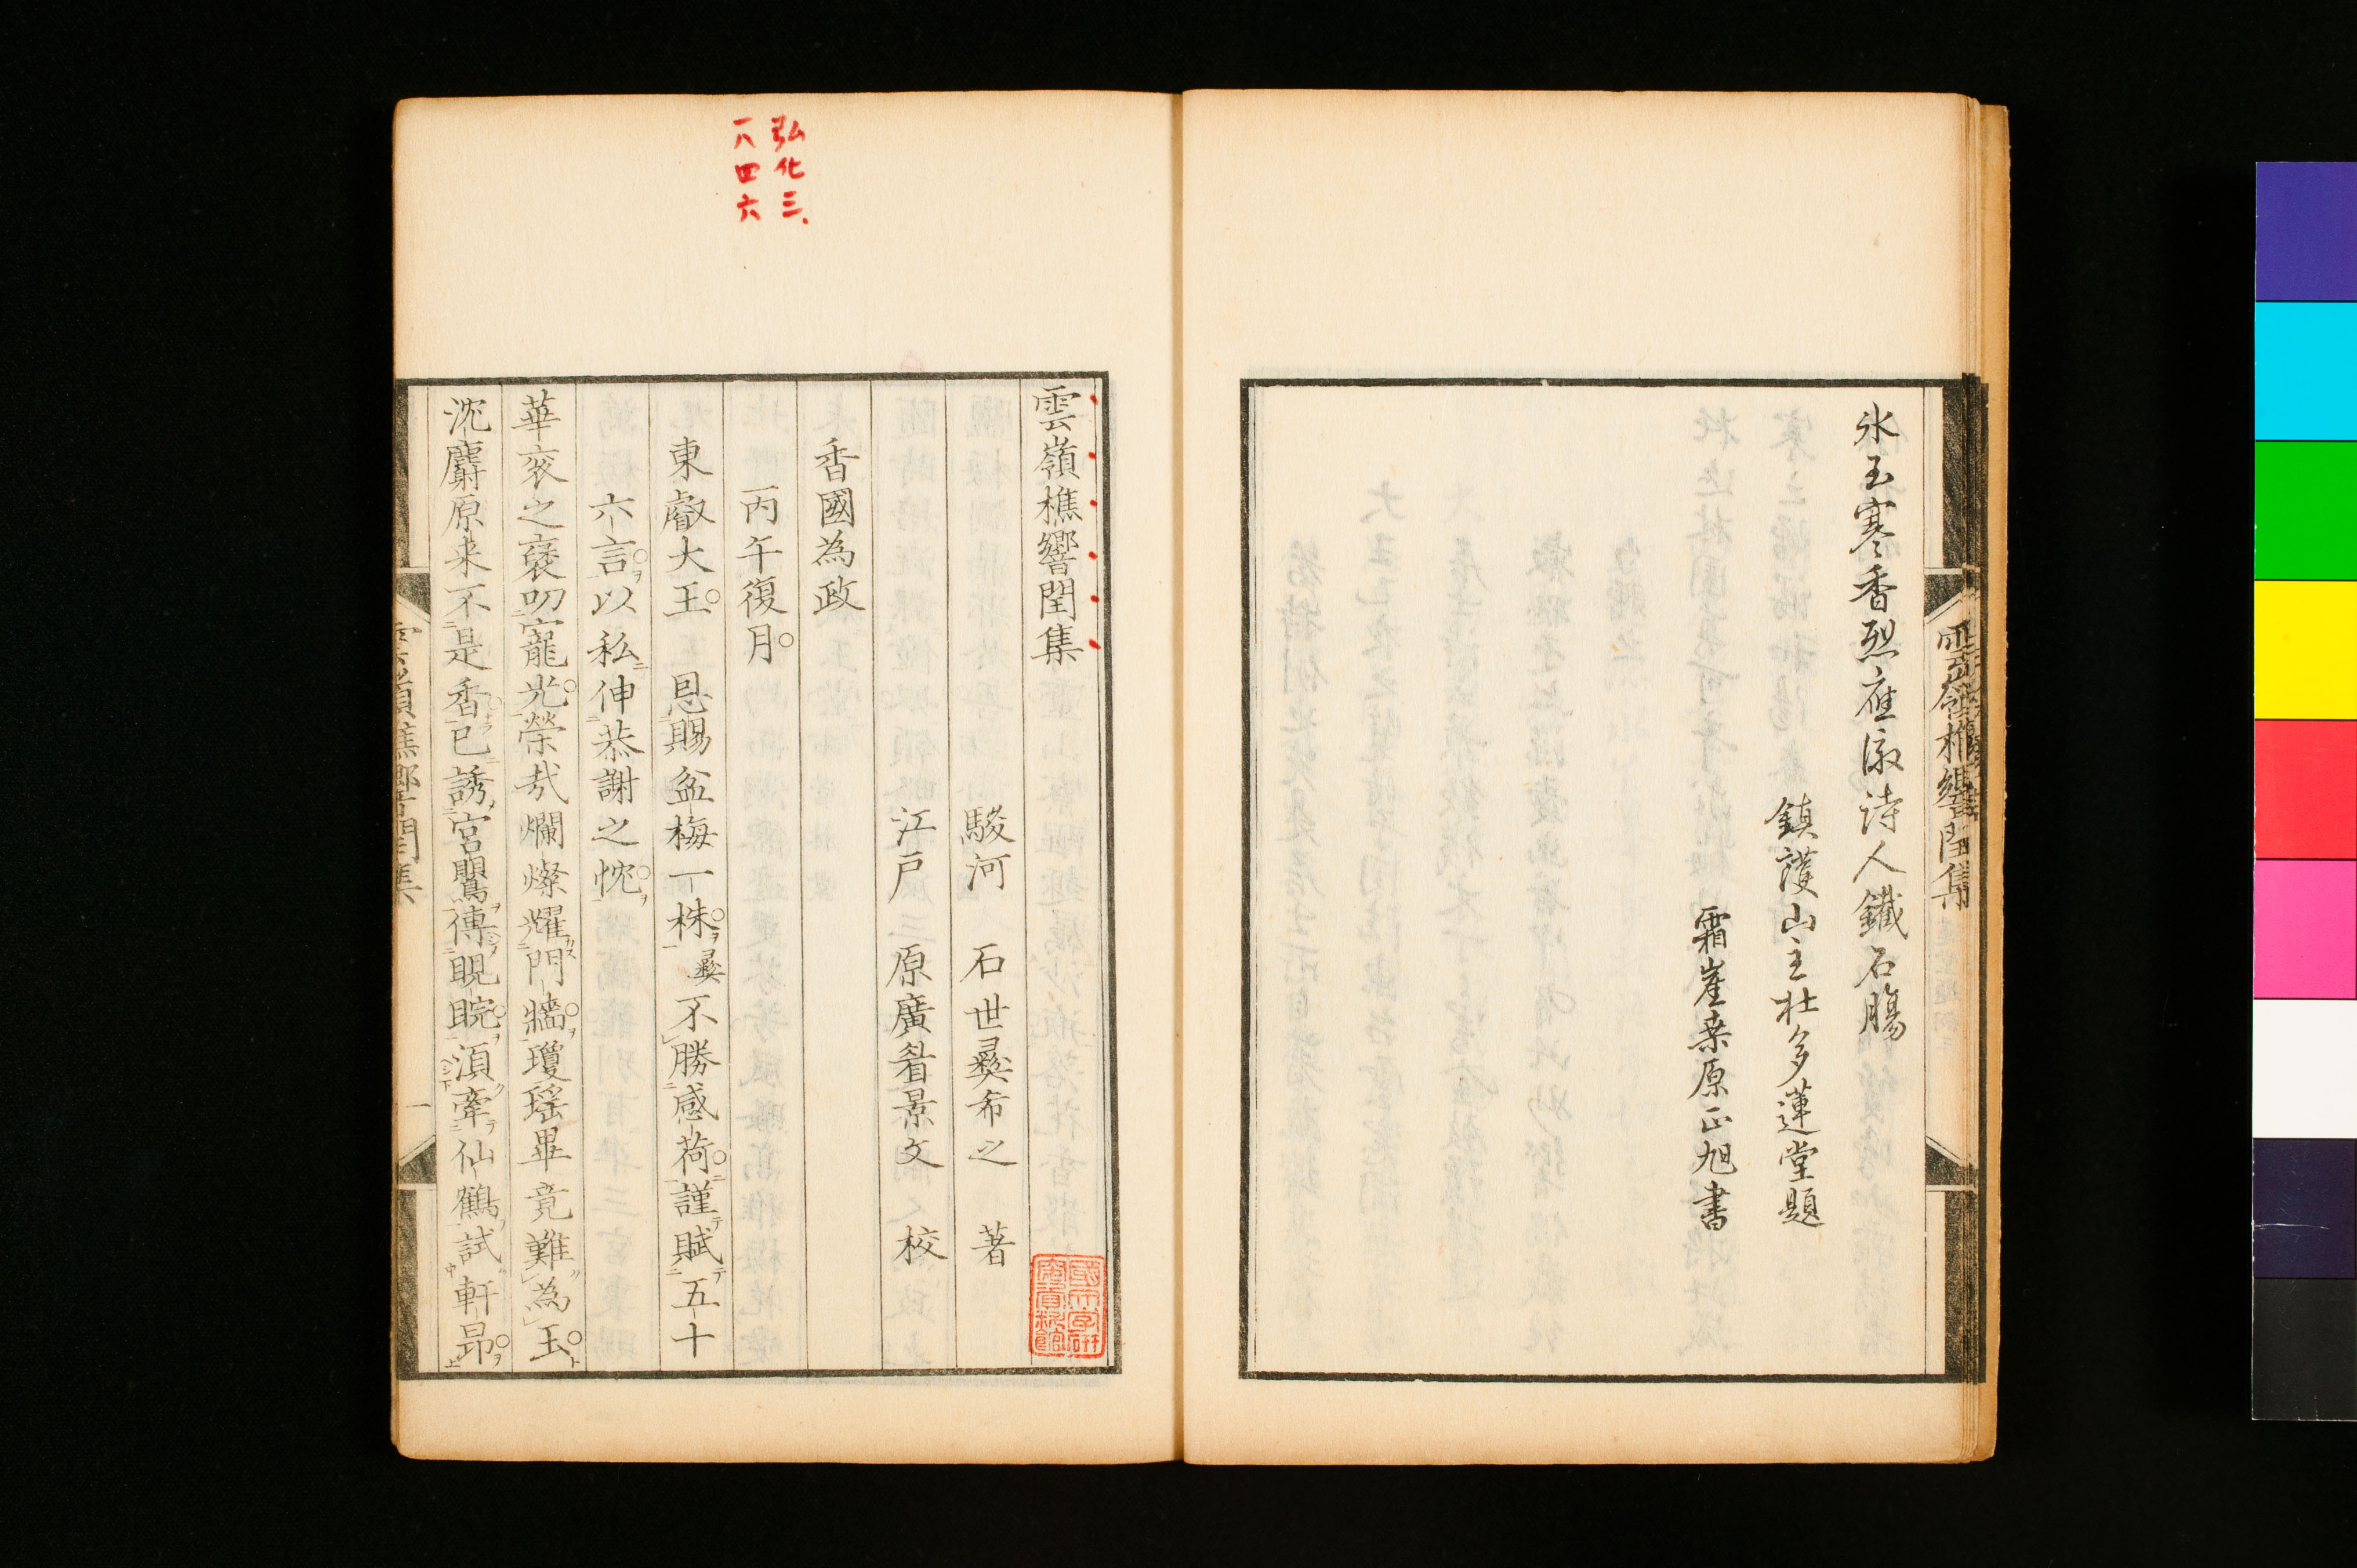 氷玉寒香烈應激詩人鐵石膓
鎮護山主杜多蓮堂題
霜崖桒原正旭書
雲嶺樵響閏集
弘化三、
一八四六
雲嶺樵響閏集
駿河 石世彜希之 著
江戸 三原廣省景文 校
香國為政
丙午復月
東叡大王 恩賜盆梅一株彜不勝感荷謹賦五十
六言以私伸恭謝之忱
華衮之褒叨寵光榮哉爛燦耀門牆瓊瑶畢竟難為玉
沈麝原来不是香已誘宮鸎傳睍睆湏牽仙鶴試軒昻
雲嶺樵響閏集
一